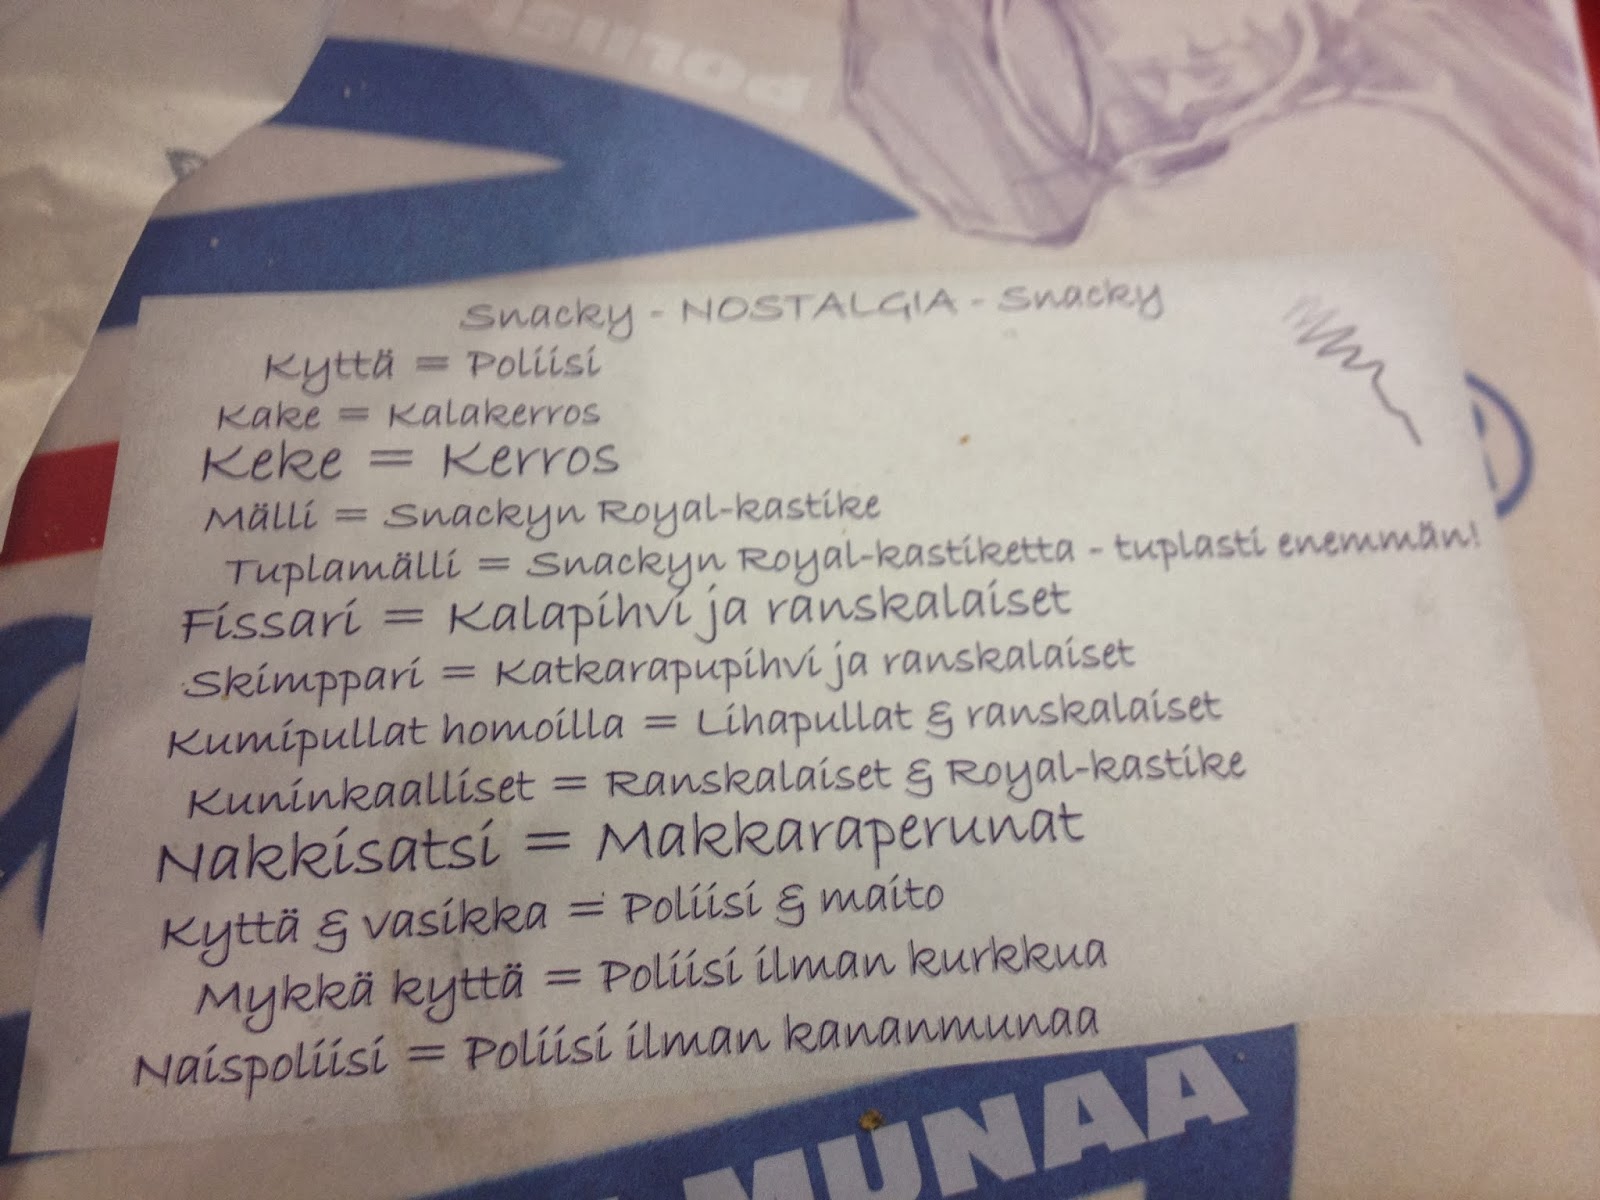 POLIISI
Snacky - NOSTALGIA - Snacky
Kyttä = Poliisi
Kake = Kalakerros
Keke = Kerros
Mälli = Snackyn Royal-kastike
Tuplamälli = Snackyn Royal-kastiketta - tuplasti enemmän!
Fissari = Kalapihvi ja ranskalaiset
Skimppari = Katkarapupihvi ja ranskalaiset
Kumipullat homoilla = Lihapullat & ranskalaiset
Kuninkaalliset = Ranskalaiset & Royal-kastike
Nakkisatsi = Makkaraperunat
Kyttä & vasikka = Poliisi & maito
Mykkä kyttä = Poliisi ilman kurkkua
Naispoliisi = Poliisi ilman kananmunaa
MUNAA